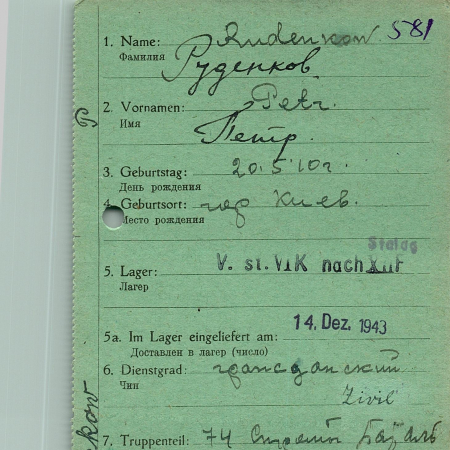 581
1. Name: Rudenkow
Фамилия Руденков.
2. Vornamen: Petr.
Имя Петр.
3. Geburtstag: 20.5.10г.
День рождения
4. Geburtsort: гор Киев.
Место рождения
Stalag
5. Lager: V. st. VI K nach XII F
Лагер
5a. Im Lager eingeliefert am: 14. Dez. 1943
Доставлен в лагер (число)
6. Dienstgrad: гражданский
Чин Zivil
7. Truppenteil: 74